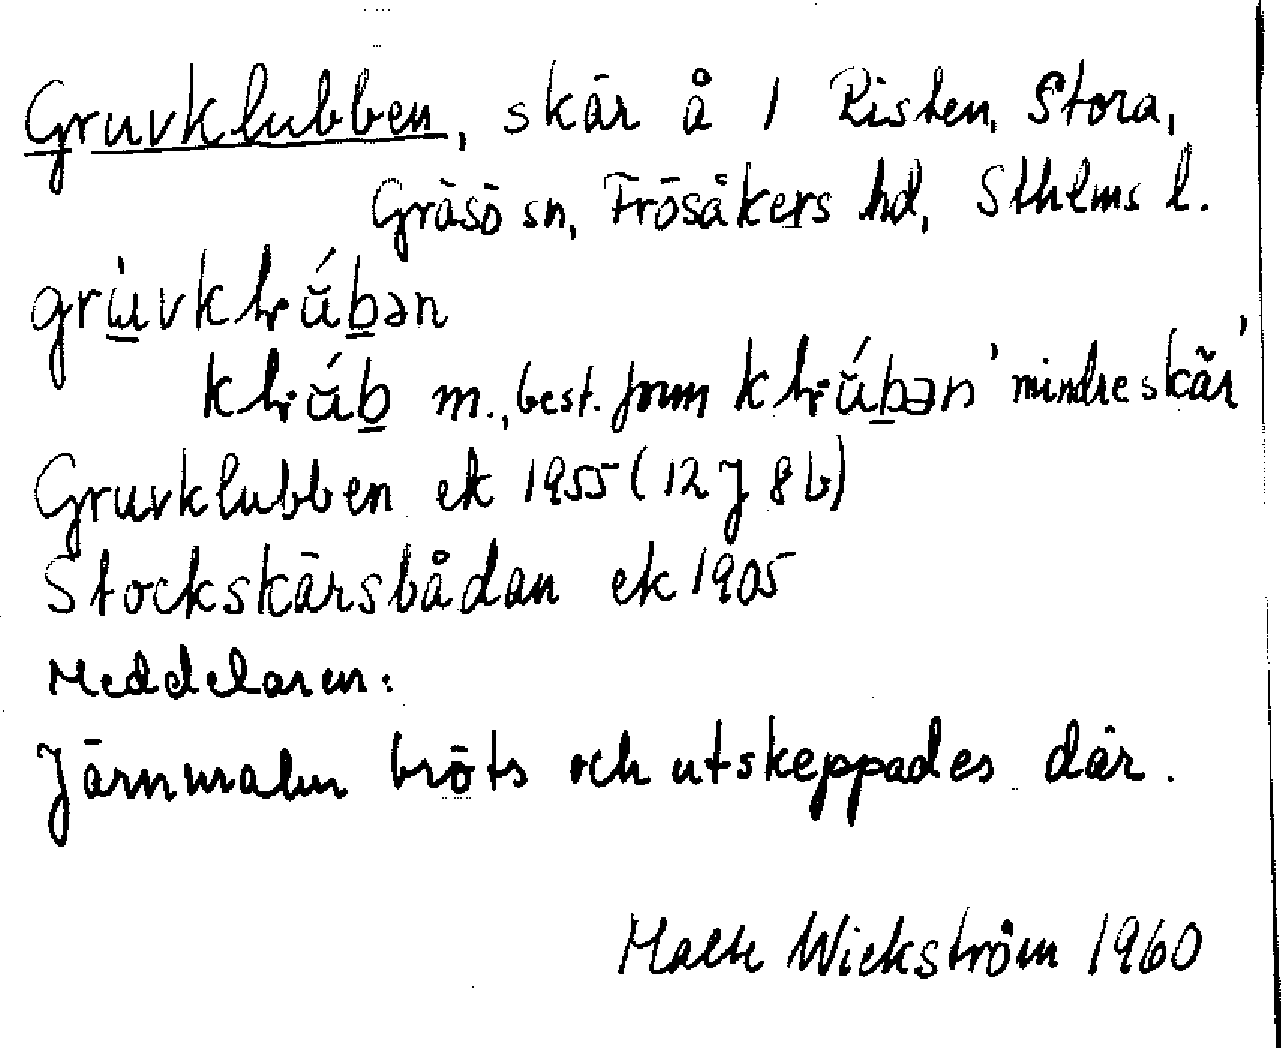 Gruvklubben, skär å 1 Risten, Stora,
Gräsö sn, Frösåkers hd, Sthlms l.
grùvklúbən
klúb m., best. form klúbən 'mindre skär'
Gruvklubben ek 1955 (12 J 8 b)
Stockskärsbådan ek 1905
Meddelaren:
Järnmalm bröts och utskeppades där.
Malte Wickström 1960